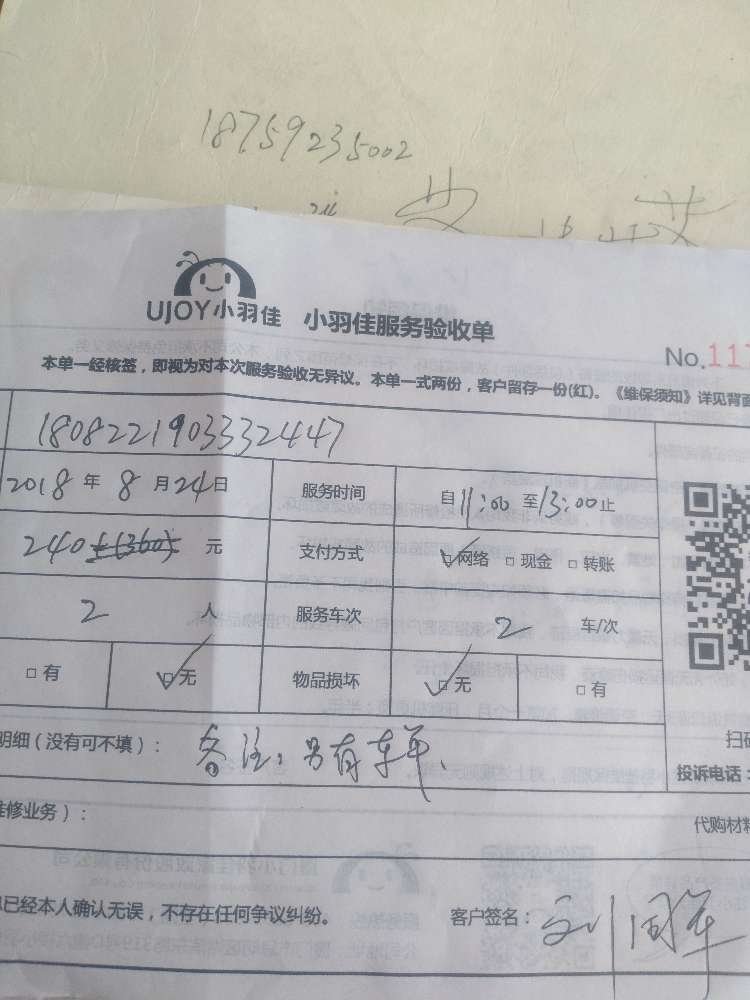 18759235002
UJOY小羽佳 小羽佳服务验收单
No.117
本单一经核签，即视为对本次服务验收无异议。本单一式两份，客户留存一份(红)。《维保须知》详见背面
1808221903332447
2018年8月24日 服务时间 自11:00至13:00止
240 元 支付方式 网络 现金 转账
2 人 服务车次 2 车/次
有 无 物品损坏 无 有
明细（没有可不填）： 备注：另有车单. 扫码
投诉电话：
维修业务）： 代购材料
已经本人确认无误，不存在任何争议纠纷。 客户签名：